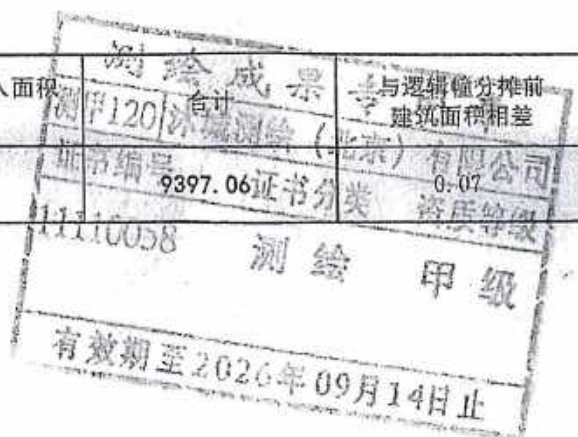 人面积
合计
与逻辑幢分摊前
建筑面积相差
9397.06
0.07
测绘成果
测甲120 测绘（北京）有限公司
证书编号 证书分类 资质等级
11110058 测绘 甲级
有效期至2026年09月14日止